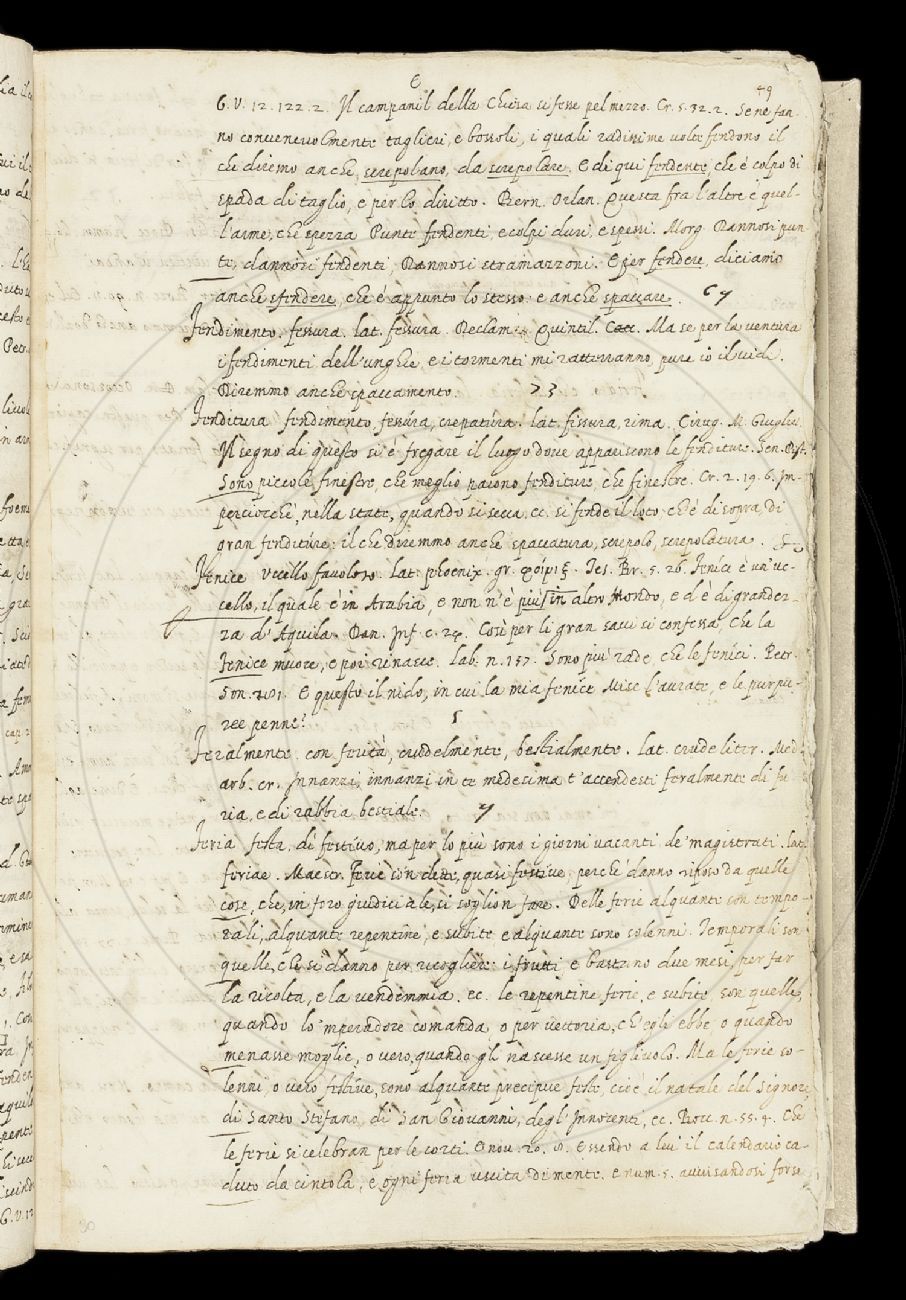 e
49
G. V. 12. 122. 2. Il campanil della Chiesa si fesse pel mezzo. Cr. 5. 32. 2. Se ne fan-
no convenevolmente taglieri, e bossoli, i quali radissime volte fendono il
che diremo anche, screpolano, da screpolare. E di qui fendente, che è colpo di
spada di taglio, e per lo diritto. Bern. Orlan. Questa fra l'altre è quel-
l'arme, che spezza Punte fendenti, e colpi duri, e spessi. Morg. Dannosi pun-
te, dannosi fendenti, Dannosi stramazzoni. E per fendere, diciamo
anche sfendere, che è appunto lo stesso: e anche spaccare.
Fendimento. fessura. lat. fessura. Declam. Quintil. Ma se per la ventura
i fendimenti dell'unghie, e i tormenti mi atterranno, pure io il vidi.
Diremmo anche spaccamento.
Fenditura fendimento, fessura, crepatura. lat. fissura, rima. Cirug. M. Guglie.
Il segno di questo si è fregare il luogo dove appariscono le fenditure. Sen. Pist.
Sono piccole finestre, che meglio paiono fenditure, che finestre. Cr. 2. 19. 6. Im-
perciocché, nella state, quando si secca ec. si fende il loto, ch'è di sopra, di
gran fenditure: il che diremmo anche spaccatura, screpolo, screpolatura.
Fenice uccello favoloso. Lat. phoenix. gr. φοίνιξ. Tes. Br. 5. 26. Fenice è un'uc-
cello, il quale è in Arabia, e non n'è più in altro Mondo, e d'è di grandez-
za d'Aquila. Dan. Inf. c. 24. Così per li gran savi si confessa, Che la
Fenice muore, e poi rinasce. Lab. n. 157. Sono più rade, che le fenici. Petr.
Son. E questo il nido, in cui la mia fenice Mise l'aurate, e le purpu-
ree penne?
Feralmente. con ferità, crudelmente, bestialmente. lat. crudeliter. Med.
arb. cr. Innanzi, innanzi in te medesima t'accendesti feralmente di fu-
ria, e di rabbia bestiale.
Feria festa, dì festivo, ma per lo più sono i giorni vacanti de' magistrati. lat.
feriae. Maestr. Ferie son dette, quasi festive, perché danno riposo da quelle
cose, che, in foro giudiciale, si soglion fare. Delle ferie alquante son tempo-
rali, alquante repentine, e subite e alquante sono solenni. Temporali son
quelle, che si danno per ricogliere i frutti e bastano due mesi, per far
la ricolta, e la vendemmia. ec. le repentine ferie, e subite, son quelle,
quando lo 'mperadore comanda, o per vettoria, ch'egli ebbe, o quando
menasse moglie, o vero, quando gli nascesse un figliuolo. Ma le ferie so-
lenni, o vero festive, sono alquante precipue feste, cioè il natale del Signore,
di Santo Stefano, di San Giovanni, degl' Innocenti, ec. Bocc. n. 55. 4. Che
le ferie si celebran per le corti. E nov. 20. Essendo a lui il calendario ca-
duto da cintola, e ogni feria uscita di mente. e num. 5. avvisandosi forse